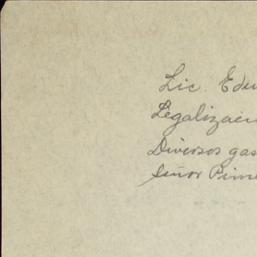 Lic. Edu
Legalizaci
Diversos gas
Señor Pime